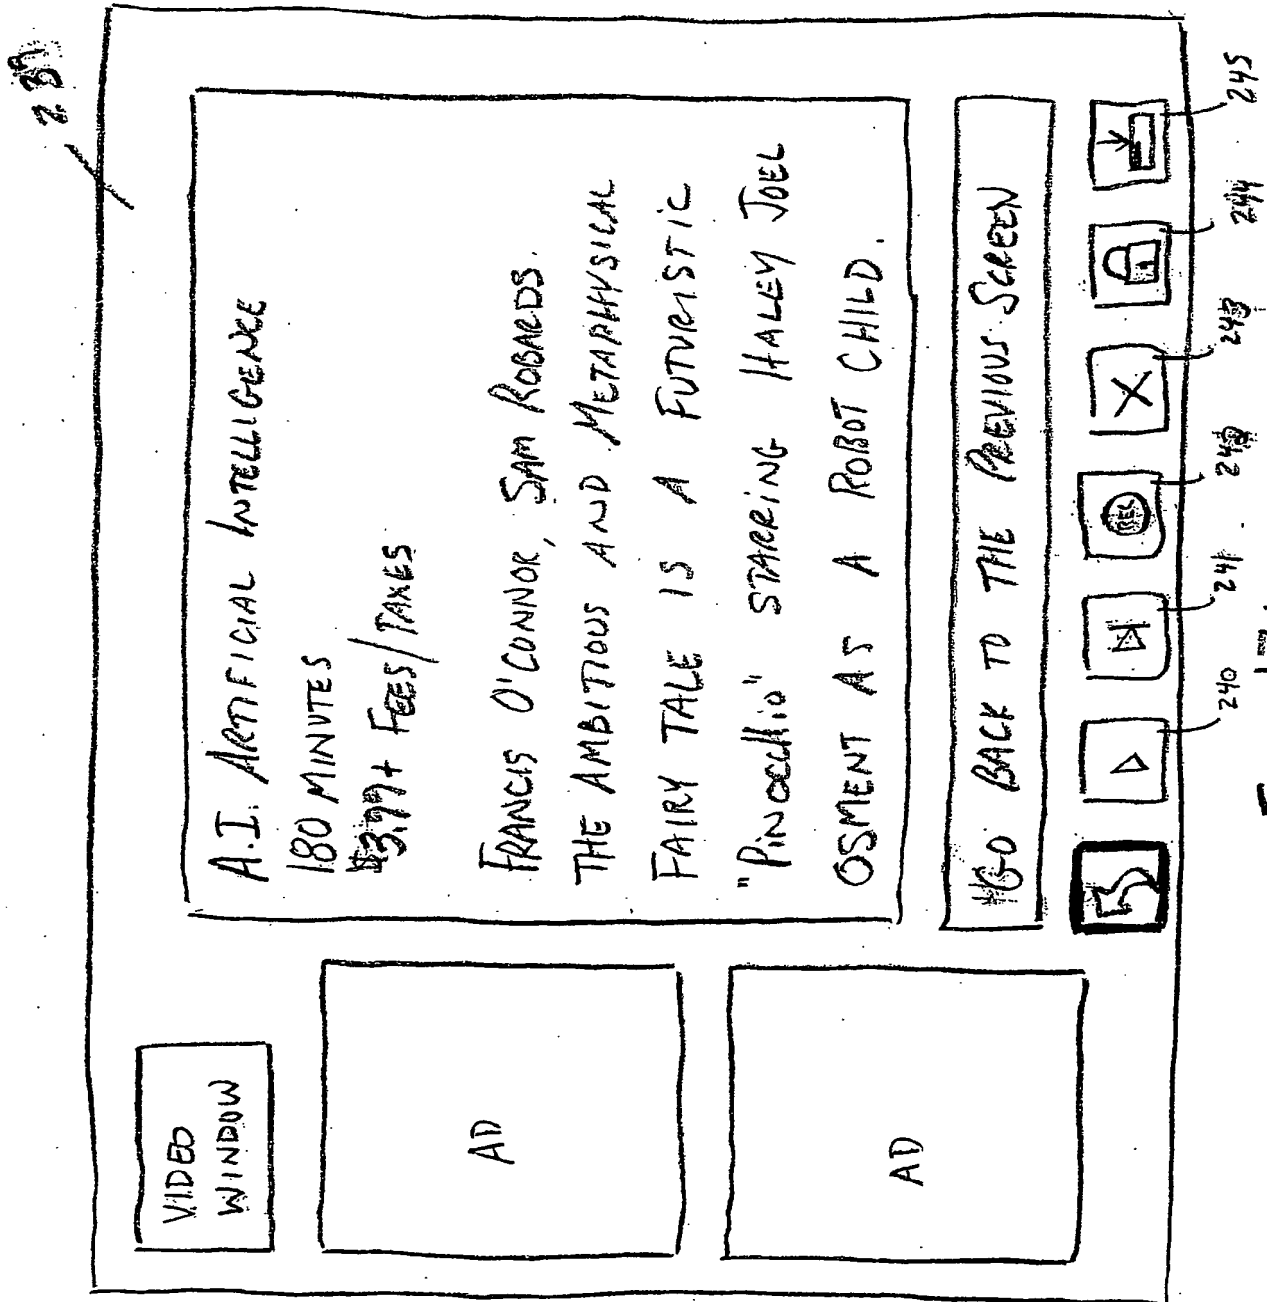 239
VIDEO
WINDOW
AD
AD
A.I. ARTIFICIAL INTELLIGENCE
180 MINUTES
$3.99+ FEES/TAXES
FRANCIS O'CONNOR, SAM ROBARDS.
THE AMBITIOUS AND METAPHYSICAL
FAIRY TALE IS A FUTURISTIC
"PINOCCHIO" STARRING HALEY JOEL
OSMENT AS A ROBOT CHILD.
GO BACK TO THE PREVIOUS SCREEN
REC
240
241
242
243
244
245